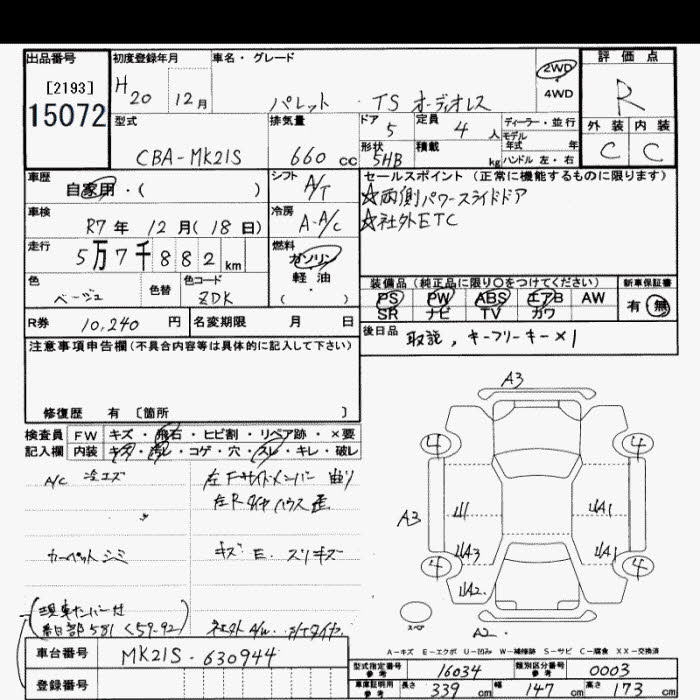 出品番号 初度登録年月 車名・グレード 評価点
[2193]
15072
H20 12月 パレット・TS オーディオレス
2WD
4WD
R
型式 排気量 ドア 定員 ディーラー・並行
CBA-MK21S 660 cc 5 4 人 モデル年式 年
形状 積載 外装 内装
5HB kg ハンドル 左・右 C C
車歴 シフト セールスポイント(正常に機能するものに限ります)
自家用・( ) A/T ☆両側パワースライドドア
車検 冷房 ☆社外ETC
R7年 12月(18日) A-A/C
走行 燃料
5万7千882km ガソリン
軽油
( )
色 色替 色コード 装備品(純正品に限り○をつけてください) 新車保証書
ベージュ ZDK PS PW ABS エアB AW 有・無
SR ナビ TV カワ
R券 10,240 円 名変期限 月 日 後日品 取説, キーフリーキー×1
注意事項申告欄(不具合内容等は具体的に記入して下さい)
修復歴 有 〔箇所 〕
検査員 FW キズ・飛石・ヒビ割・リペア跡・×要
記入欄 内装 キズ・汚レ・コゲ・穴・スレ・キレ・破レ
A/C 冷エズ 左Fサイドメンバー
左Rタイヤハウス 歪
カーペットシミ キズ E. スリキズ
(現車ナンバー付
581 く59-92)
社外A/W.
A3
4 4
A3 U UA1
UA3 UA1
4 4
UA2
スペア
A2
A-キズ E-エクボ U-凹み W-補修跡 S-サビ C-腐食 XX-交換済
車台番号 MK21S-630944
登録番号
型式指定番号参考 16034 類別区分番号参考 0003
車庫証明用参考 長さ 339 cm 幅 147 cm 高さ 173 cm